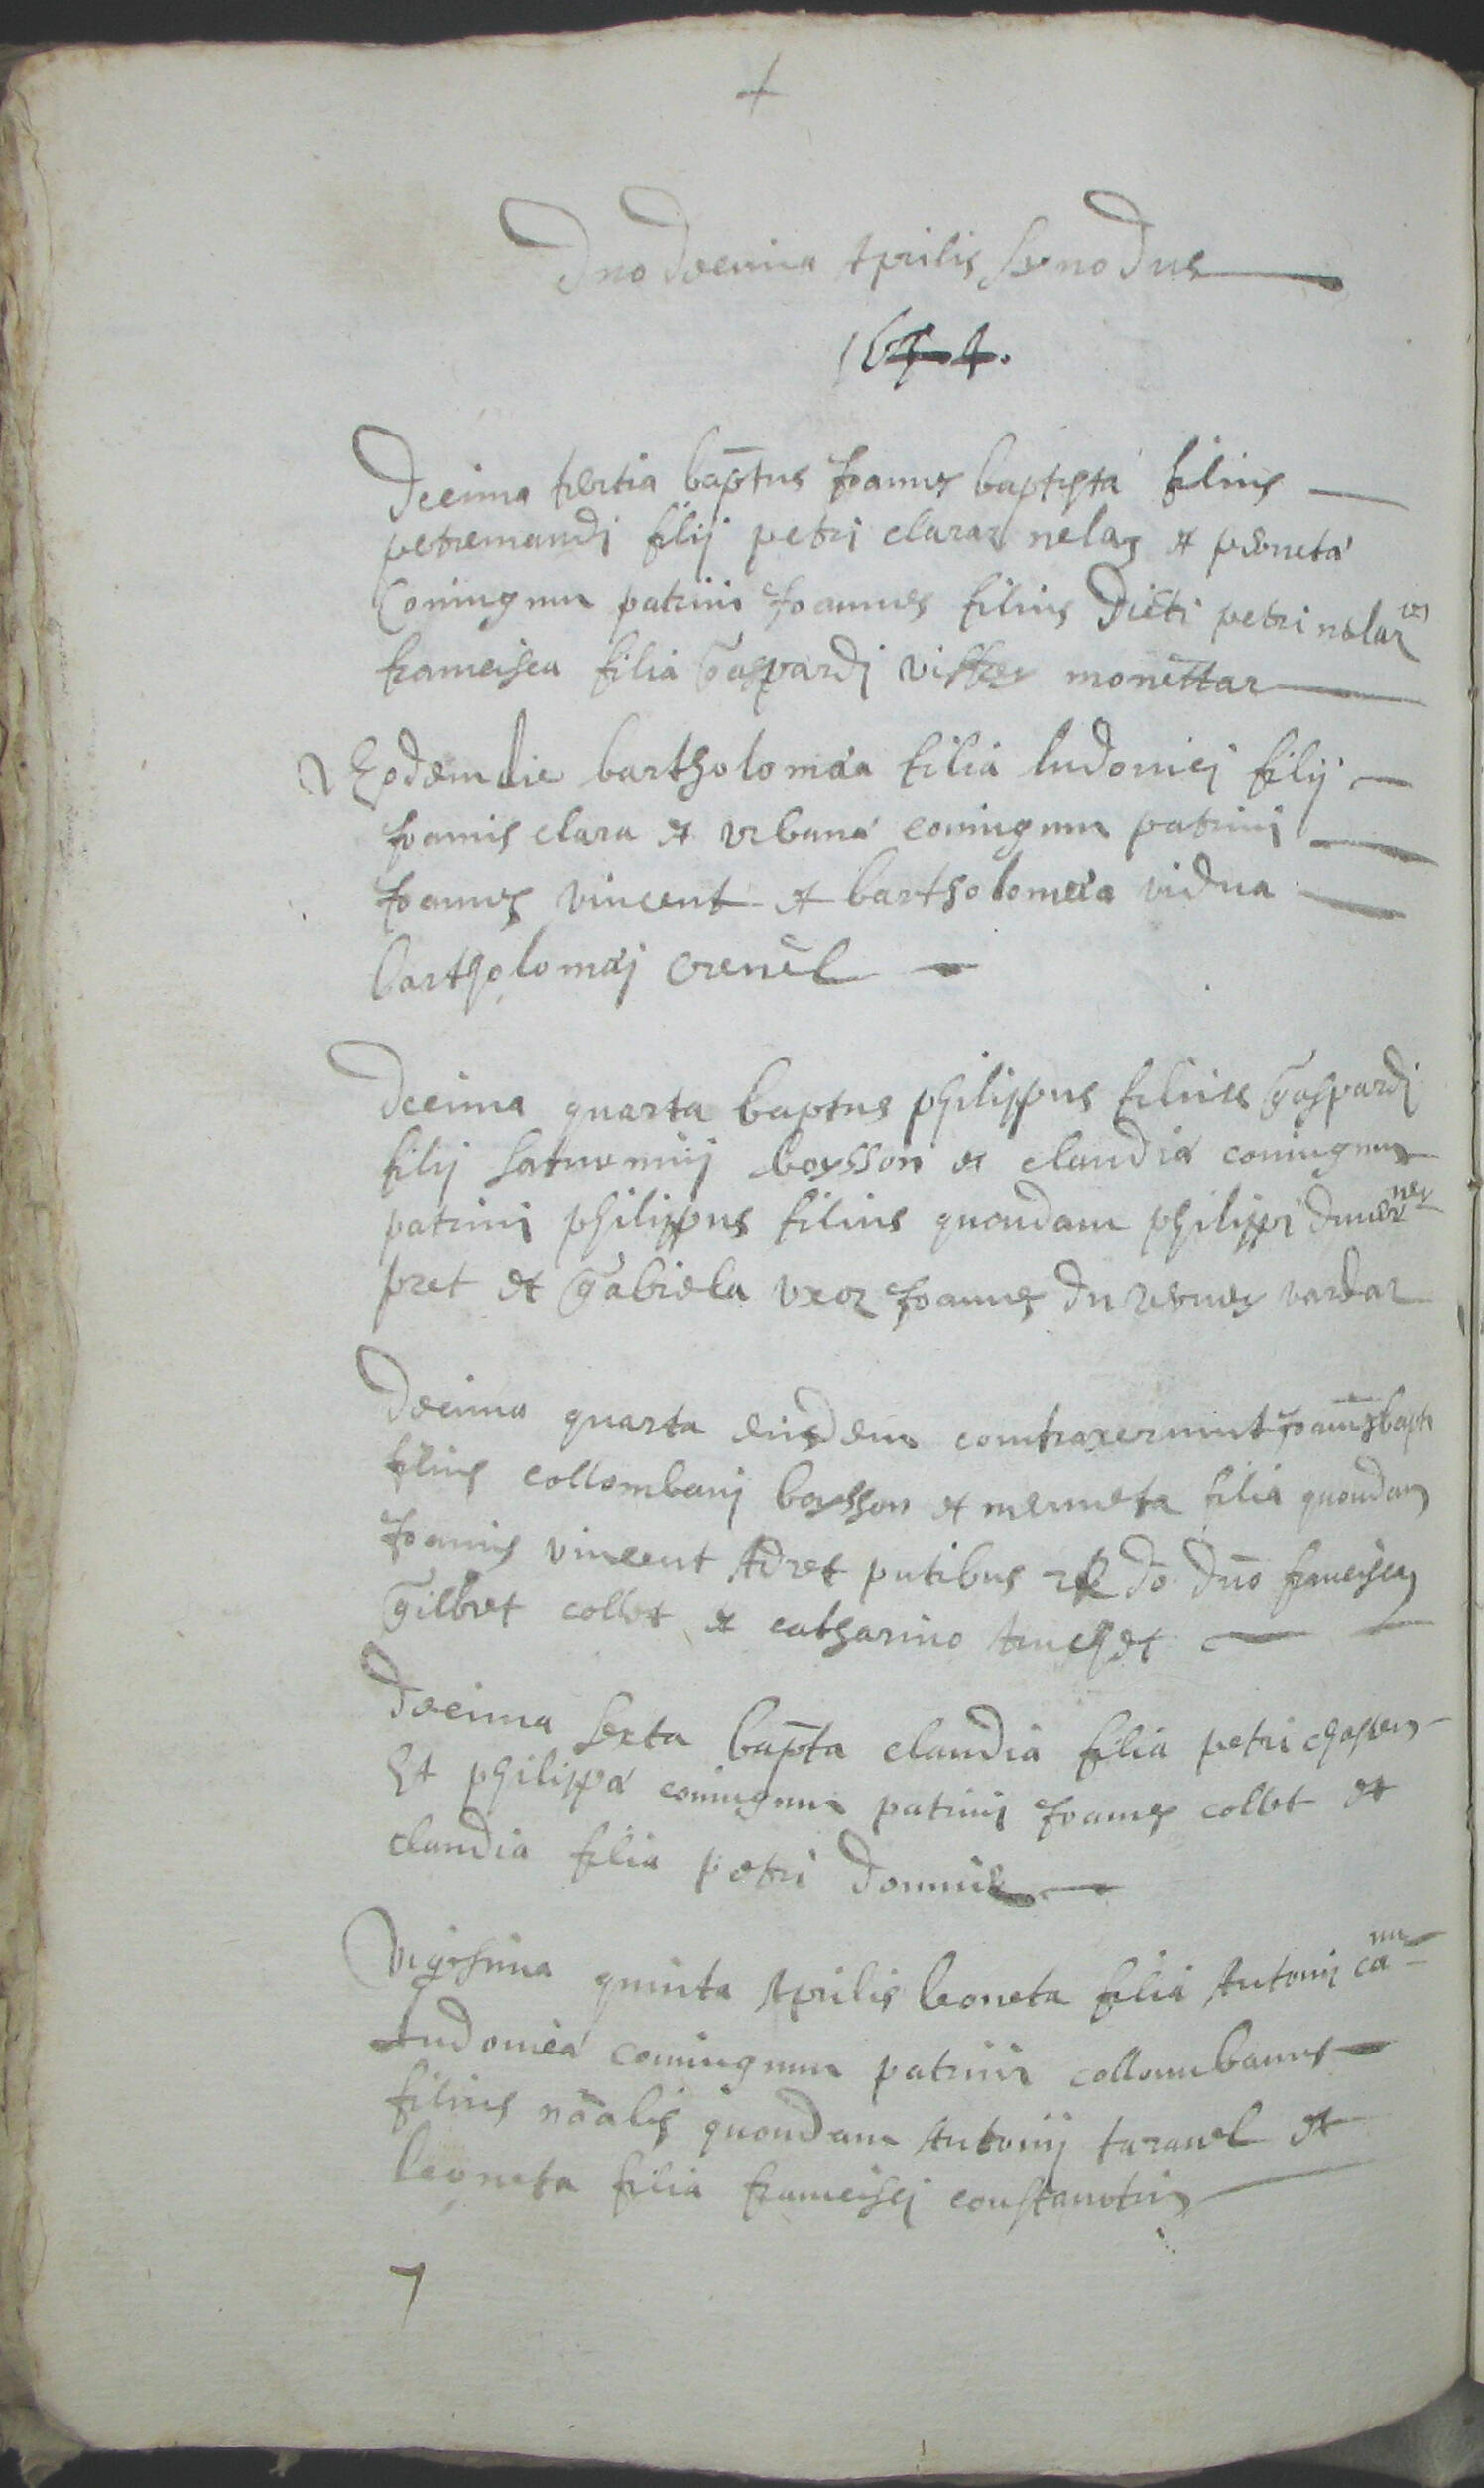 +
Duodecima Aprilis synodus
16
Decima tertia bap̄tus Joannes baptysta filius
petremandj filij petrj claraz nelaz et perneta
Coniugum patrini Joannes filius dicti petri nelaz
francisca filia Gaspardj monettaz
Eodem die bartholomæa filia ludovicj filij
Joannis clara et urbana coniugum patrinj
Joannes vincent et bartholomæa vidua
bartholomæj crenel
Decima quarta baptus philippus filius Gaspardj
filij saturninj boysson et claudiæ coniugum
patrini philippus filius quondam philippi
pret et Gabriela uxor Joannes du verney
Decima quarta eiusdem contraxerunt Joannes bapta
filius collombanj boysson et merneta filia quondam
Joannis vincent Adret putibus Rdo dno francisco
Gilbret collet et catharino Auchet
Decima sexta bap̄ta claudia filia petri
Et philippæ coniugum patrinj Joannes collet et
claudia filia petri
Vigesima quinta Aprilis leoneta filia Antonij
ludovicæ coniugum patrini collombanus
filius nāalis quondam Antonij taravel et
leoneta filia franciscj constantin
7